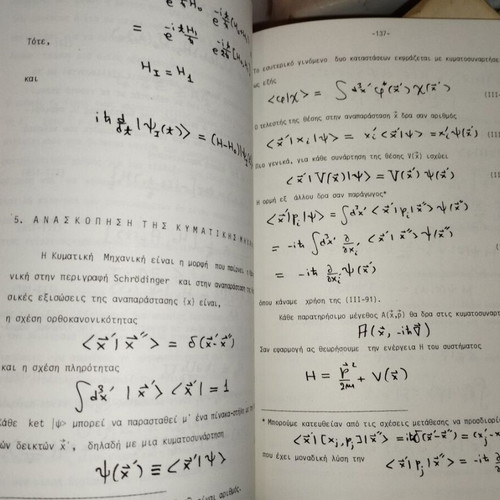 Τότε,
H_I = H_1
και
iħ d/dt |ψ_I(t)⟩ = (H-H_0)
5. ΑΝΑΣΚΟΠΗΣΗ ΤΗΣ ΚΥΜΑΤΙΚΗΣ
Η Κυματική Μηχανική είναι η μορφή που
νική στην περιγραφή Schrödinger και στην αναπαράσταση
σικές εξισώσεις της αναπαράστασης {x} είναι,
η σχέση ορθοκανονικότητας
⟨x⃗′|x⃗″⟩ = δ(x⃗′-x⃗″)
και η σχέση πληρότητας
∫d³x′ |x⃗′⟩⟨x⃗′| = 1
Κάθε ket |ψ> μπορεί να παρασταθεί μ' ένα πίνακα-στήλη
δεικτών x⃗′, δηλαδή με μια κυματοσυνάρτηση
ψ(x⃗′) ≡ ⟨x⃗′|ψ⟩
είναι αριθμός,
-137-
Το εσωτερικό γινόμενο δυο καταστάσεων εκφράζεται με κυματοσυναρτήσε
ως εξής
⟨φ|χ⟩ = ∫d³x′ φ*(x⃗′) χ(x⃗′) (III-
Ο τελεστής της θέσης στην αναπαράσταση x⃗ δρα σαν αριθμός
⟨x⃗′|x_i|ψ⟩ = x_i′⟨x⃗′|ψ⟩ = x_i′ψ(x⃗′)
Πιο γενικά, για κάθε συνάρτηση της θέσης V(x⃗) ισχύει
⟨x⃗′|V(x⃗)|ψ⟩ = V(x⃗′) ψ(x⃗′)
Η ορμή εξ άλλου δρα σαν παράγωγος*
⟨x⃗′|p_i|ψ⟩ = ∫d³x″ ⟨x⃗′|p_i|x⃗″⟩ ψ(x⃗″)
= -iħ ∫d³x″ ∂/∂x_i′ ⟨x⃗′|x⃗″⟩ ψ(x⃗″)
= -iħ ∂/∂x_i′ ψ(x⃗′)
όπου κάναμε χρήση της (III-91).
Κάθε παρατηρήσιμο μέγεθος A(x⃗,p⃗) θα δρα στις κυματοσυναρτ
A(x⃗, -iħ∇⃗)
Σαν εφαρμογή ας θεωρήσουμε την ενέργεια H του συστήματος
H = p⃗²/2μ + V(x⃗)
* Μπορούμε κατευθείαν από τις σχέσεις μετάθεσης να προσδιορίσ
⟨x⃗′|[x_i, p_j]|x⃗″⟩ = iħδ(x⃗′-x⃗″) = (x_j′-x
που έχει μοναδική λύση την ⟨x⃗′|p_j|x⃗″⟩ = -iħ